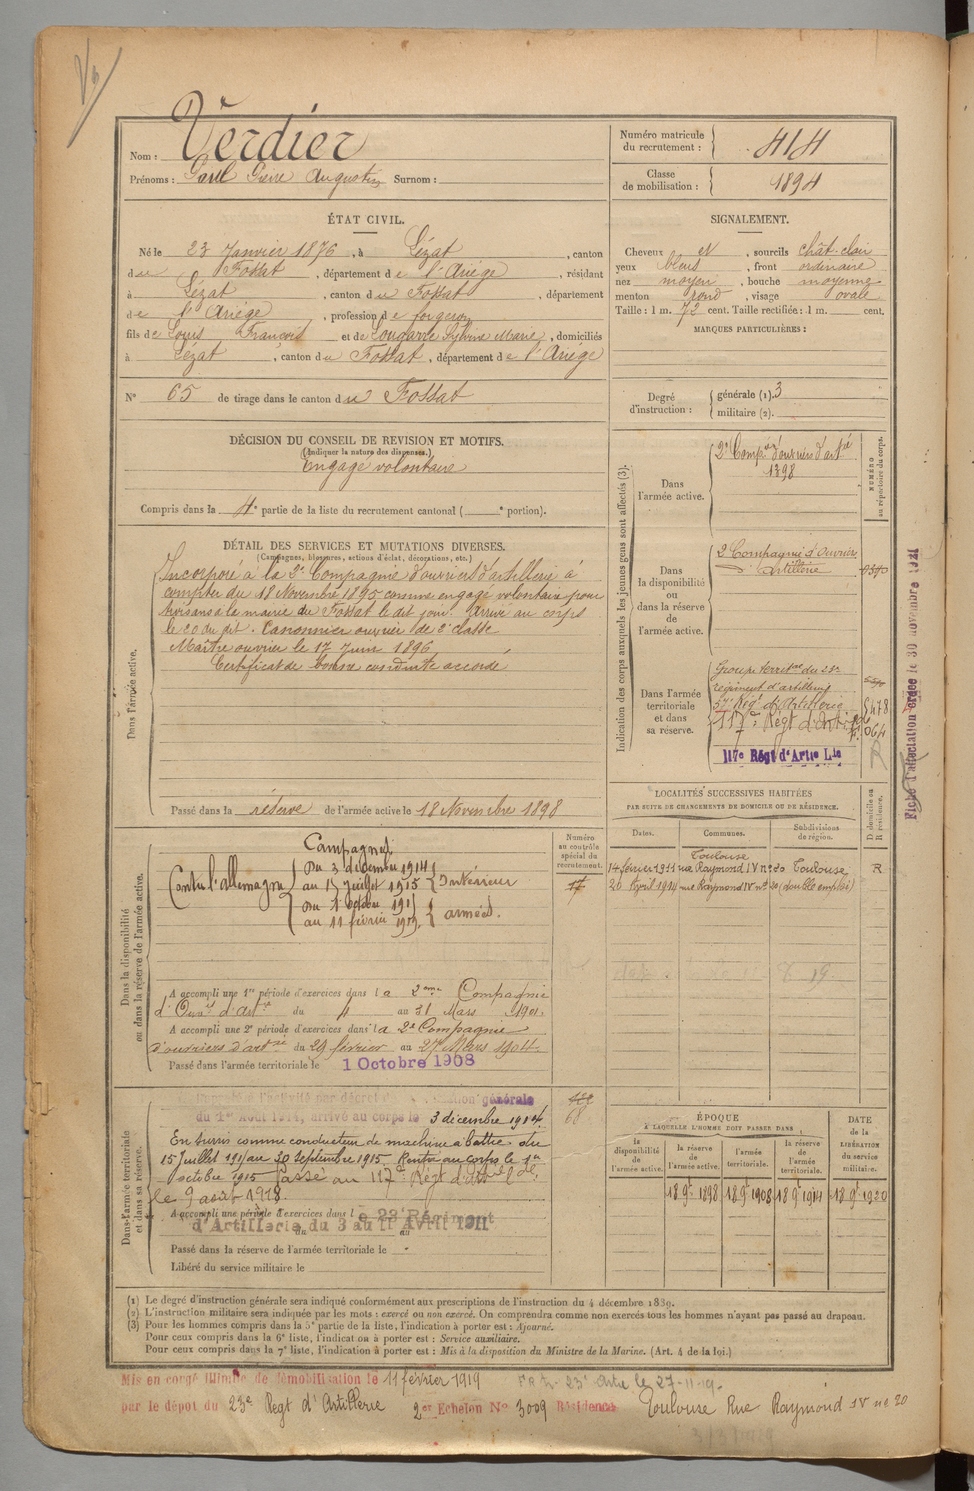 Nom : Verdier
Prénoms : Paul Pierre Augustin Surnom :
Numéro matricule du recrutement : 414
Classe de mobilisation : 1894
ÉTAT CIVIL.
Né le 23 Janvier 1876, à Lézat, canton
du Fossat, département de l'Ariège, résidant
à Lézat, canton du Fossat, département
de l'Ariège, profession de forgeron
fils de Louis François et de Lougarre Sylvine Marie, domiciliés
à Lézat, canton du Fossat, département de l'Ariège
N° 65 de tirage dans le canton du Fossat
SIGNALEMENT.
Cheveux et, sourcils chât. clair
yeux bleus, front ordinaire
nez moyen, bouche moyenne
menton rond, visage ovale
Taille : 1 m. 72 cent. Taille rectifiée : 1 m. cent.
MARQUES PARTICULIÈRES :
Degré d'instruction : générale (1). 3
militaire (2).
DÉCISION DU CONSEIL DE REVISION ET MOTIFS.
(Indiquer la nature des dispenses.)
Engagé volontaire
Compris dans la 4e partie de la liste du recrutement cantonal ( portion).
DÉTAIL DES SERVICES ET MUTATIONS DIVERSES.
(Campagnes, blessures, actions d'éclat, décorations, etc.)
Dans l'armée active.
Incorporé à la 2e Compagnie d'ouvriers d'artillerie à
compter du 18 Novembre 1895 comme engagé volontaire pour
trois ans à la mairie du Fossat le dit jour. Arrivé au corps
le 20 du dit. Canonnier ouvrier de 2e classe
Maître ouvrier le 17 Juin 1896
Certificat de bonne conduite accordé
Passé dans la réserve de l'armée active le 18 Novembre 1898
Indication des corps auxquels les jeunes gens sont affectés (3).
NUMÉRO au répertoire du corps.
Dans l'armée active.
2e Compie d'ouvriers d'artie
1398
Dans la disponibilité ou dans la réserve de l'armée active.
2 Compagnie d'Ouvriers
d'Artillerie
Dans l'armée territoriale et dans sa réserve.
Groupe territal du 23e
régiment d'artillerie
57 Régt d'Artillerie
117e Régt d'Artie
117e Régt d'Artie Lde
R
Fiche d'affectation créée le 30 novembre 1921
LOCALITÉS SUCCESSIVES HABITÉES
PAR SUITE DE CHANGEMENTS DE DOMICILE OU DE RÉSIDENCE.
D domicile ou R résidence.
Dates. Communes. Subdivisions de région.
Toulouse
14 février 1911 rue Raymond IV n° 20 Toulouse R
26 April 1914 rue Raymond IV n° 20 (double emploi)
Dans la disponibilité ou dans la réserve de l'armée active.
Numéro au contrôle spécial du recrutement.
17
Campagnes
Contre l'Allemagne
Du 3 décembre 1914
au 15 juillet 1915 Intérieur
Du 1 octobre 1915
au 11 février 1919. armées.
A accompli une 1re période d'exercices dans la 2eme Compagnie
d'Ouvrs d'Artie du 4 au 31 Mars 1901.
A accompli une 2e période d'exercices dans la 2e Compagnie
d'ouvriers d'artie du 29 février au 27 Mars 1904.
Passé dans l'armée territoriale le 1 Octobre 1908
Dans l'armée territoriale et dans sa réserve.
Rappelé à l'activité par décret de mobilisation générale
du 1er Août 1914, arrivé au corps le 3 décembre 1914.
68
En sursis comme conducteur de machine à battre du
15 Juillet 1915 au 30 Septembre 1915. Rentré au corps le 1er
octobre 1915 Passé au 117e Régt d'artie lde,
le 9 août 1918.
A accompli une période d'exercices dans le 23e Régiment
d'Artillerie du 3 au 11 Avril 1911
Passé dans la réserve de l'armée territoriale le
Libéré du service militaire le
ÉPOQUE
A LAQUELLE L'HOMME DOIT PASSER DANS
DATE de la LIBÉRATION DU service militaire.
la disponibilité de l'armée active. la réserve de l'armée active. l'armée territoriale. la réserve de l'armée territoriale.
18 9e 1898 18 9e 1908 18 9e 1914 18 9e 1920
(1) Le degré d'instruction générale sera indiqué conformément aux prescriptions de l'instruction du 4 décembre 1889.
(2) L'instruction militaire sera indiquée par les mots : exercé ou non exercé. On comprendra comme non exercés tous les hommes n'ayant pas passé au drapeau.
(3) Pour les hommes compris dans la 5e partie de la liste, l'indication à porter est : Ajourné.
Pour ceux compris dans la 6e liste, l'indication à porter est : Service auxiliaire.
Pour ceux compris dans la 7e liste, l'indication à porter est : Mis à la disposition du Ministre de la Marine. (Art. 4 de la loi.)
Mis en congé illimité de démobilisation le 11 février 1919
par le dépôt du 23e Regt d'Artillerie 2er Echelon No 3009 Résidence Toulouse Rue Raymond IV n° 20